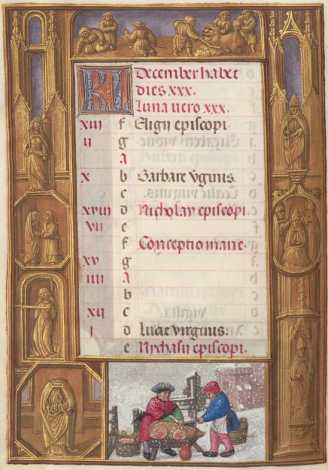 KL December habet
dies xxx.
Luna vero xxx.
xiii f Eligii episcopi
ii g
A
x b Barbare virginis
c
xviii d Nicholay episcopi.
vii e
f Conceptio marie.
xv g
iiii A
b
xii c
i d Lucie virginis.
e Nychasii episcopi.